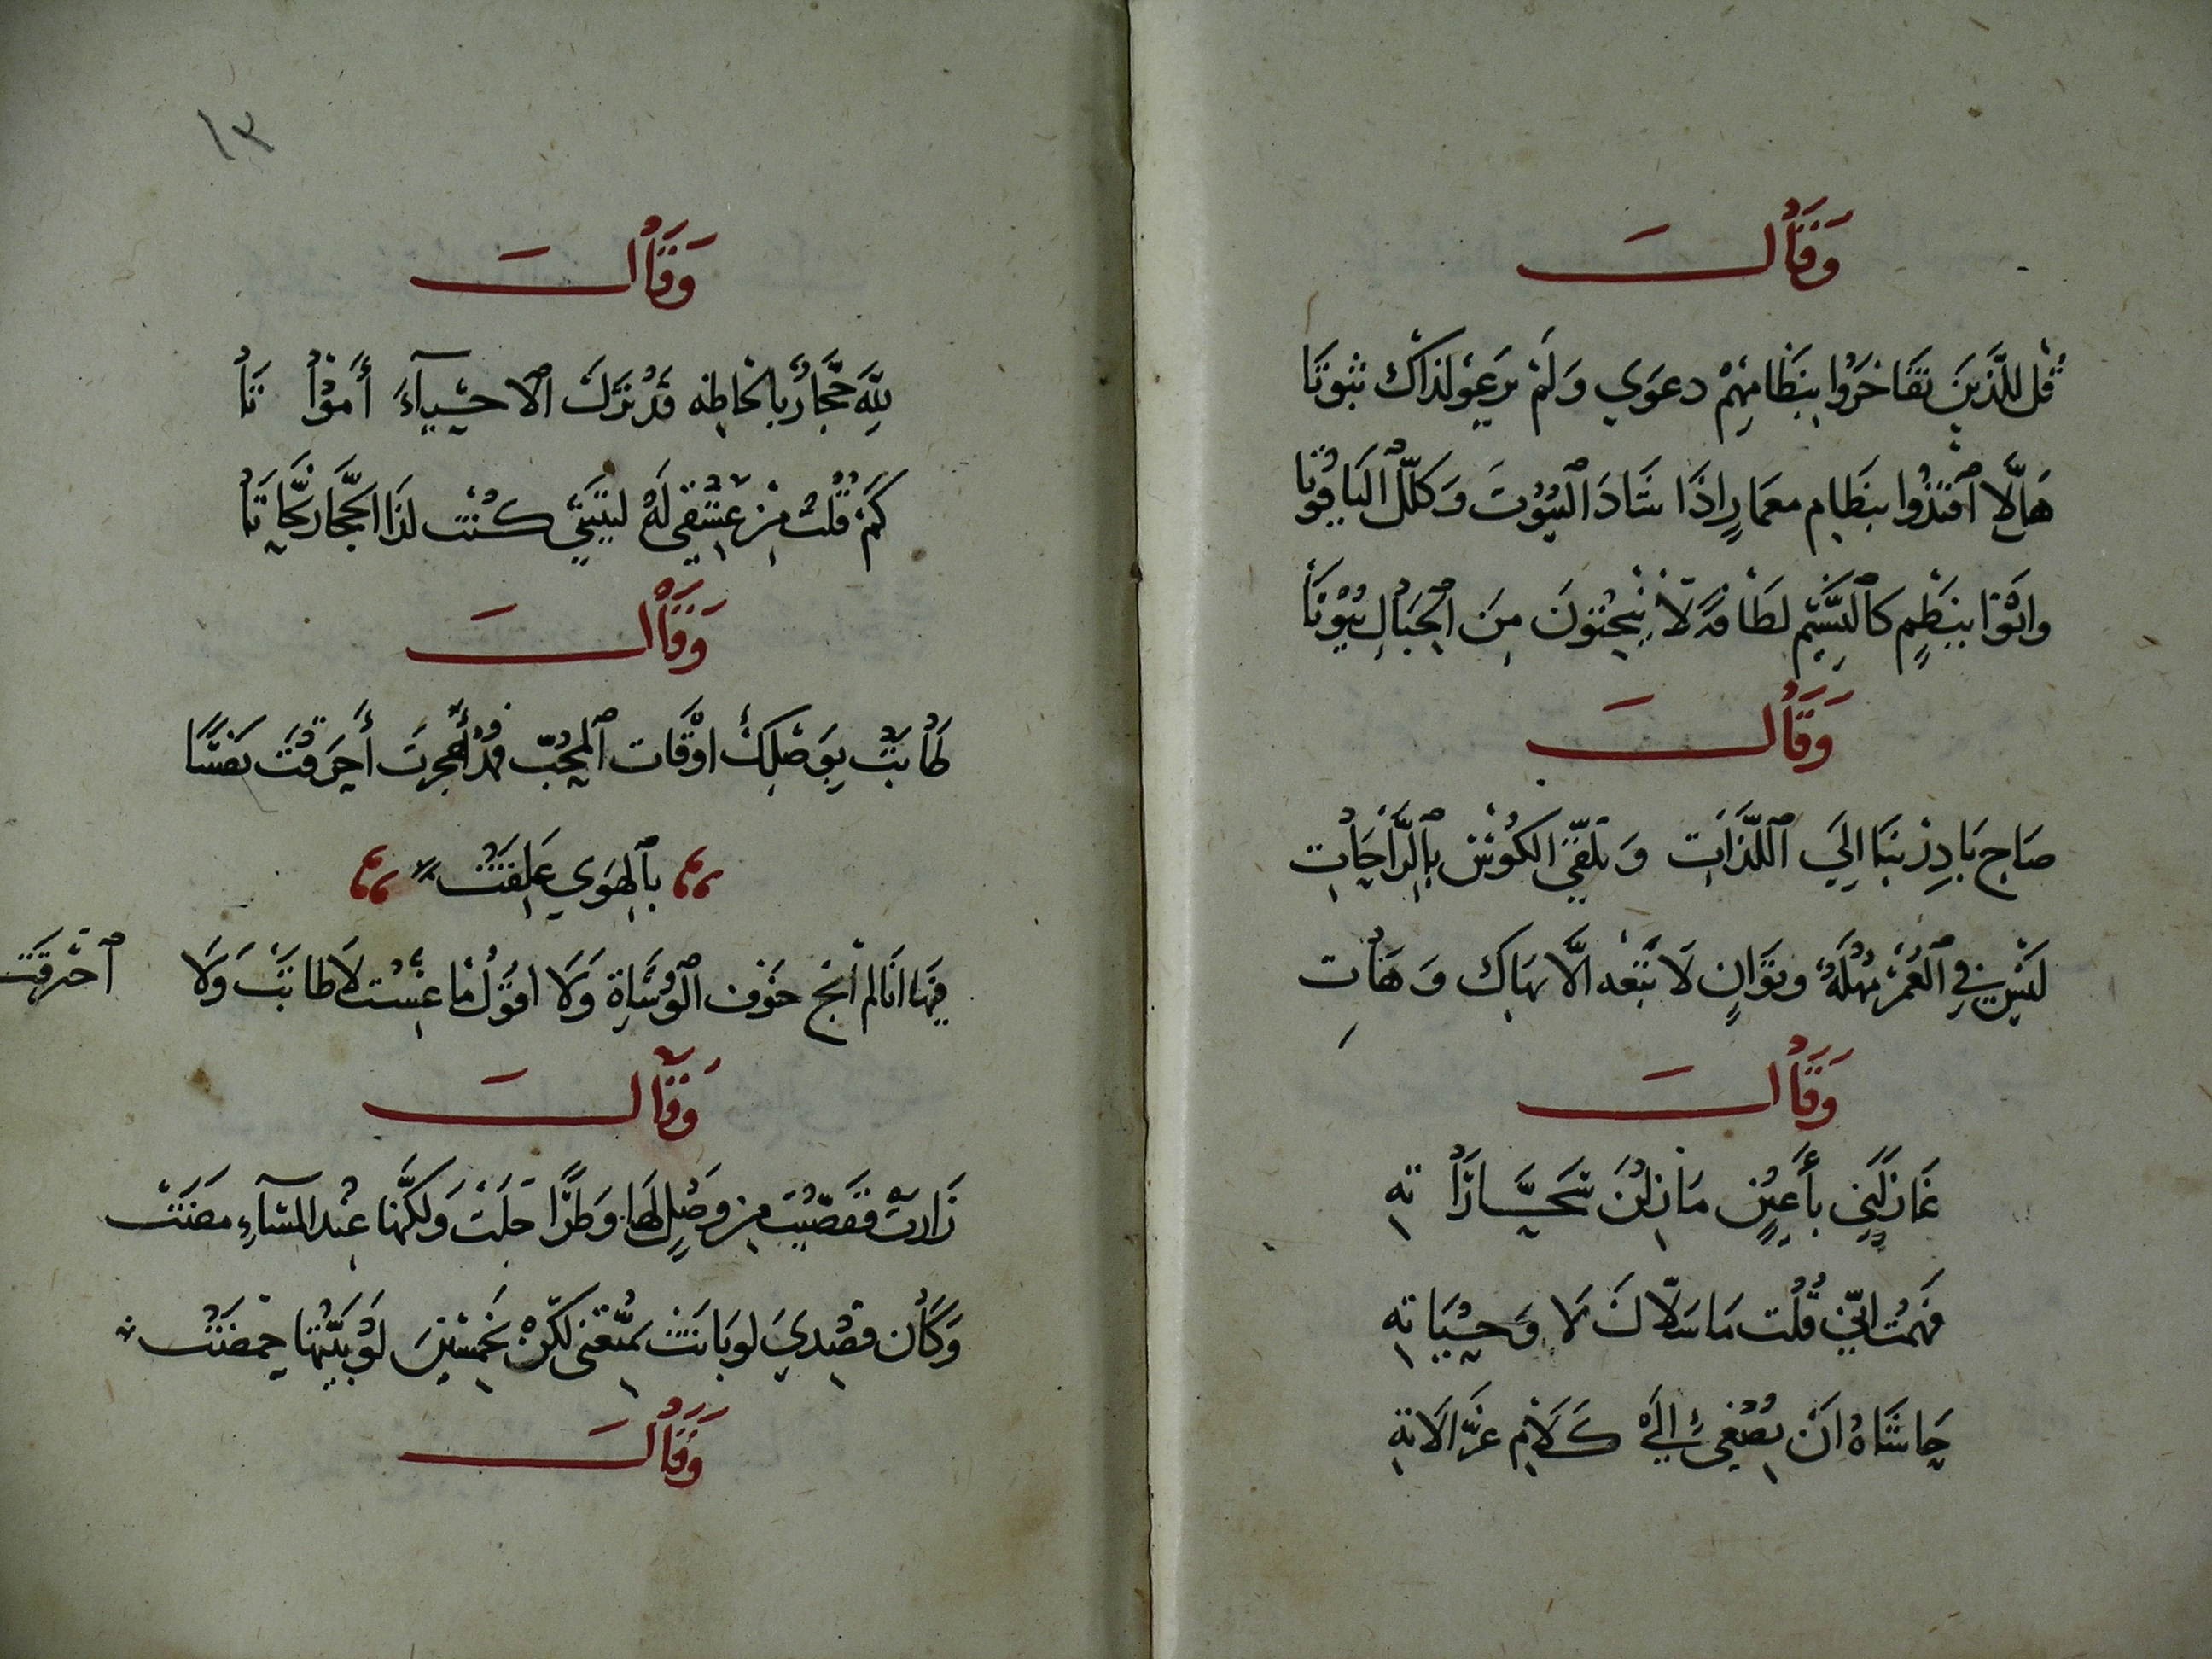 وَقَالَ
قُل للَّذَينَ تفَاخَرُوا بنِظَامِهِمْ دعوَي وَلَمْ يرَعِوَلذاكَ ثبوتَا
هَلَّا اقتَدُوا بنظَامِ معمَارٍ اِذَا شَادَ البُيُوتَ وَكلَّلَ اليَاقُوتَا
واتَوْا بنَظمٍ كالنَّسِيْمِ لطَافةً لَا يَنْحِتُونَ مِنَ الجِبَالِ بُيُوْتَا
وَقَالَ
صَاحِ بَادِرْ بنَا اِلَي اللَّذَاتِ وَ تلقّي الكُوسَ بالرَّاحَاتِ
لَيْسَ فِي العُمْرِ مُهْلَةُ وتوَانٍ لَا تَبعْه الَّا بهَاكَ وَهَاتِ
وَقَالَ
غَازلَني بأَعيُنٍ مَازلنَ سَحَّارَاتِهِ
فهَمتُ اذِّ قُلْت مَا سَلَاكَ لَا وَحيَاتِهِ
حَاشَاهُ اَنْ يصْغي اِلَي كَلَامِ عزَّالَاتِهِ
١٣
وَقَالَ
لِلَّهَ حجَّارٌ بالحَاظِه قَدْ تَرَكَ الاحْيَآءَ أَمْوَا تَا
كَمْ قُلْتُ مِنْ عِشْقِي لَهُ ليتَنِي كُنْت لذَا الحجَّار نحَّاتَا
وَقَالَ
طَابَتْ بِوَصْلِكَ اوْقَات المُحِبّ فمُذْ أُهجِرتَ أَحرَقْتَ نفسًا
بالهَوَي عَلِقَتْ
فهَا انَا لم انجُ خوْف الوُشَاةِ وَلَا اقوْلُ مَا عِشْت لَا طابَتْ وَلَا احْترقَتْ
وَقَالَ
زَارتْ فقضّيْت مِن وَصْلٍ لهَا وَطَرًا حَلَتْ وَلكنَّها عِنْد المسَآءِ مضَتْ
وَكَانَ قصْدِيَ لو بَاتَتْ لكنْ خَمْسِينَ لَوْ بَيَّتُها حمضَتْ
وَقَالَ